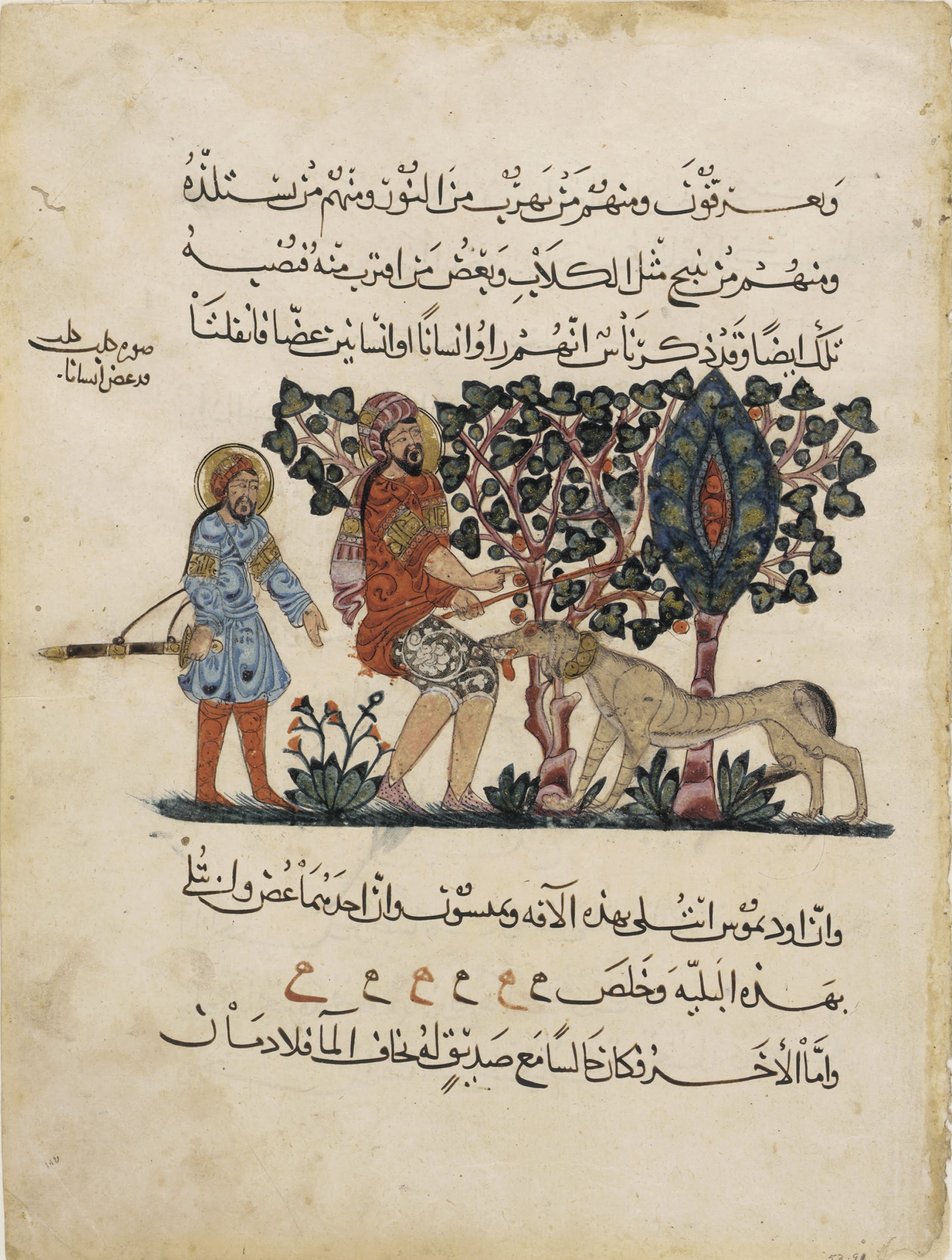 ويعرقون ومنهم من يهرب من النور ومنهم من يستلذه
ومنهم من ينبح مثل الكلاب ويعض من اقترب منه فتصيبه
تلك ايضا وقد ذكر ناس انهم راوا انسانا او انسانين عضا فانفلتا
صوره كلب كلب
قد عض انسانا
وان اوديموس ابتلى بهذه الآفه وان احدهما عض وابتلي
بهذه البليه وخلص
واما الأخر فكان جالسا مع صديق له يخاف المآ فلا دمان